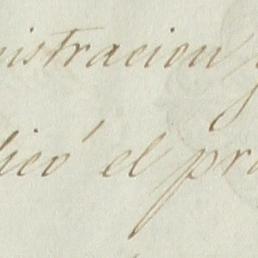 nistracion
dicó el pro